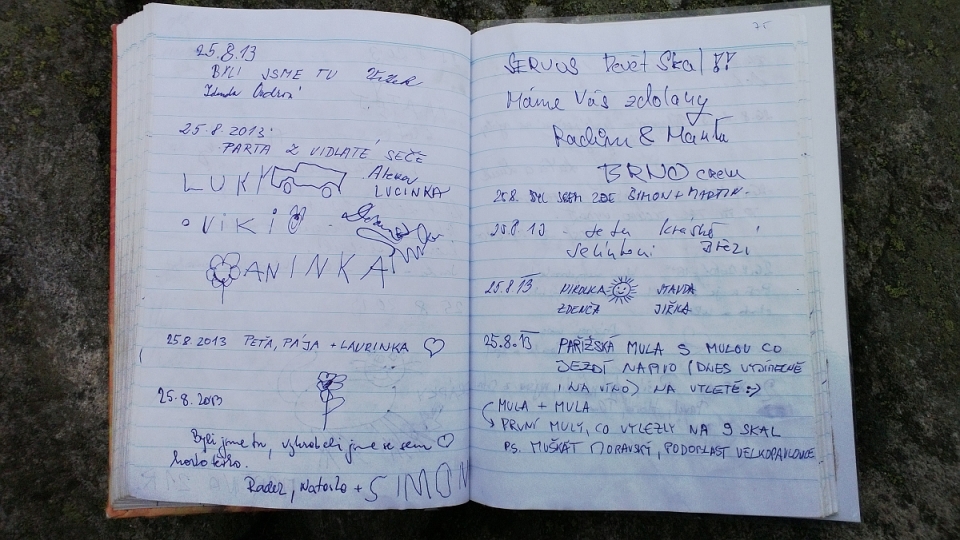 25.8.13
BYLI JSME TU
25.8.2013
PARTA Z VIDLATÉ SEČE
LUKY
LUCINKA
VIKI
ANINKA
25.8.2013 PEŤA, PÁJA + LAURINKA
25.8.2013
Byli jsme tu, vyhrabali jsme se sem
horko těžko.
Radek, + SIMON
75
SERVUS Devět Skal!!
Máme Vás zdolany
Radim &
BRNO crew
25.8. BYL JSEM ZDE ŠIMON + MARTIN.
25.8.13 Je tu krásně
Březí
25.8.13 STANDA
ZDENČA JIŘKA
25.8.13 PAŘÍŽSKÁ MULA S MULOU CO
JEZDÍ NAPIVO (DNES VÝJIMEČNĚ
I NA VÍNO) NA VÝLETĚ :-)
MULA + MULA
PRVNÍ MULY, CO VYLEZLY NA 9 SKAL
PS. MUŠKÁT MORAVSKÝ, PODOBLAST VELKOPAVLOVICE